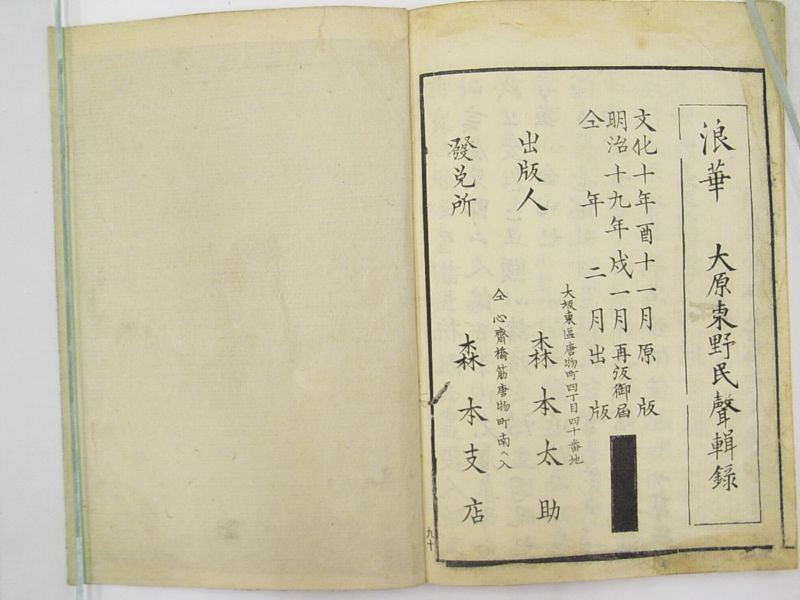 浪華 大原東野民聲輯録
文化十年酉十一月原版
明治十九年戌一月再版御届
仝年二月出版
大坂東區唐物町四丁目四十番地
出版人 森本太助
仝心齋橋筋唐物町南へ入
發兌所 森本支店
九十